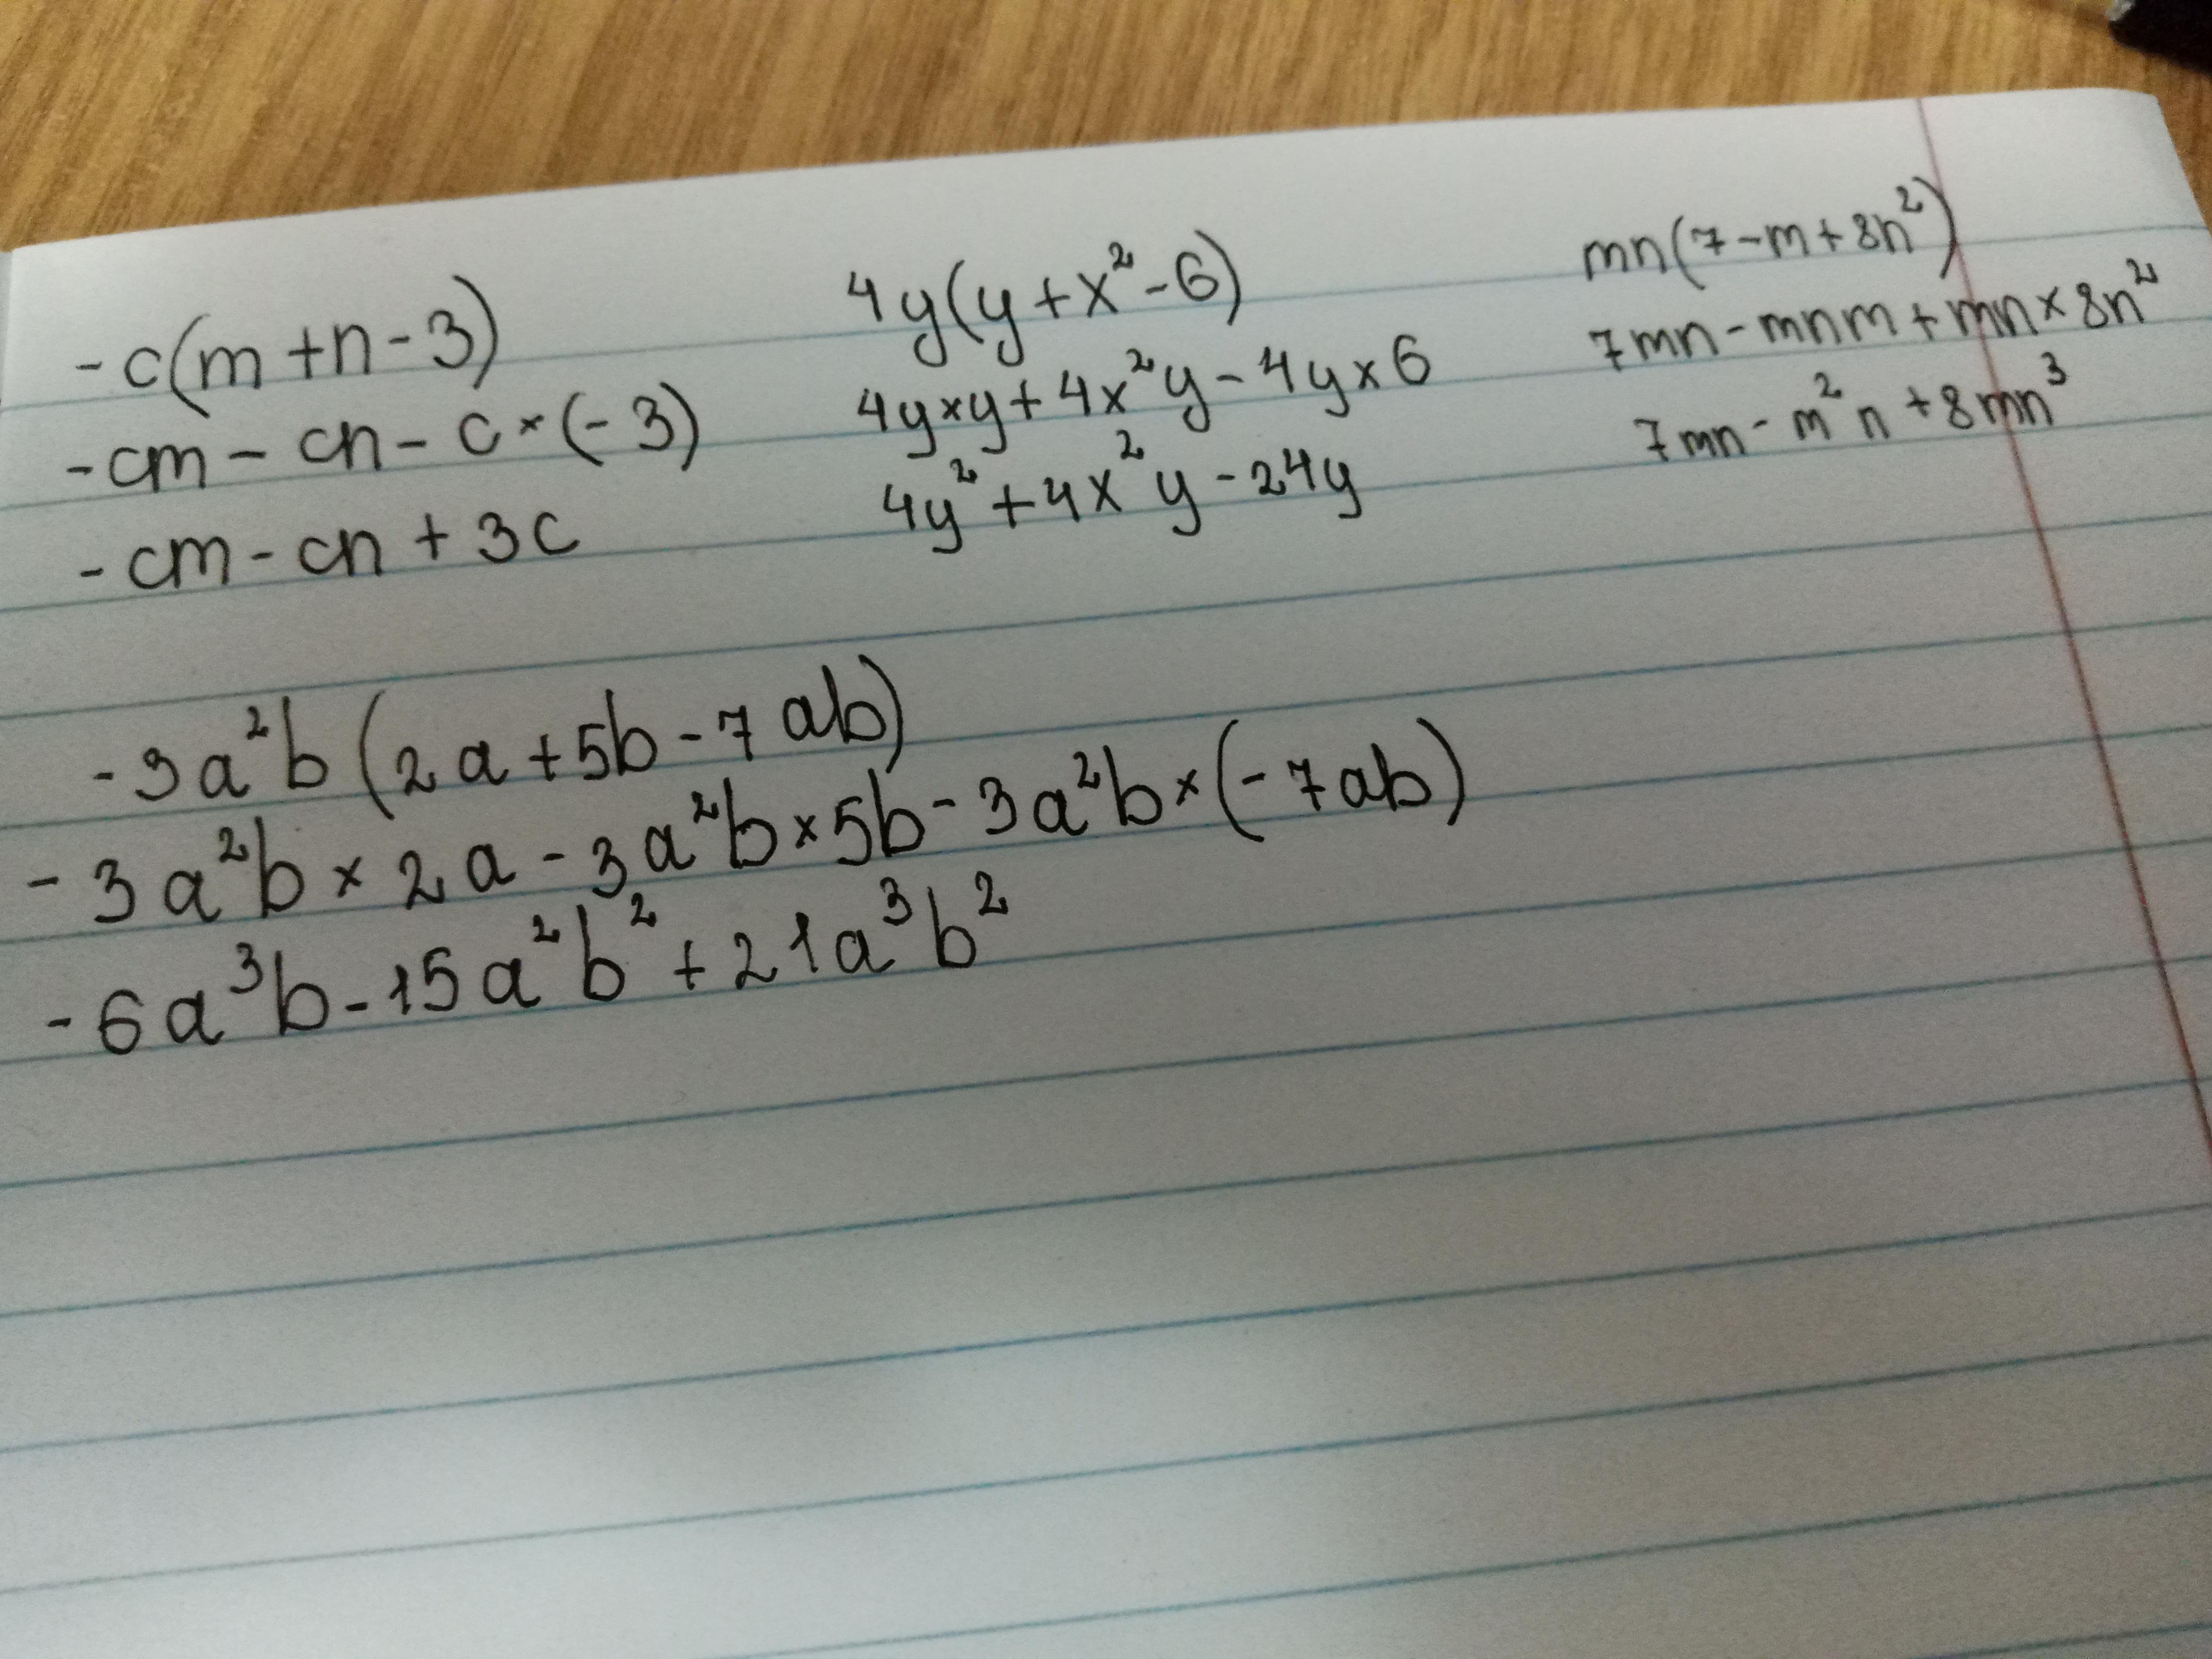 -c(m+n-3)
-cm-cn-c×(-3)
-cm-cn+3c
4y(y+x²-6)
4y×y+4x²y-4y×6
4y²+4x²y-24y
mn(7-m+8n²)
7mn-mnm+mn×8n²
7mn-m²n+8mn³
-3a²b(2a+5b-7ab)
-3a²b×2a-3a²b×5b-3a²b×(-7ab)
-6a³b-15a²b²+21a³b²